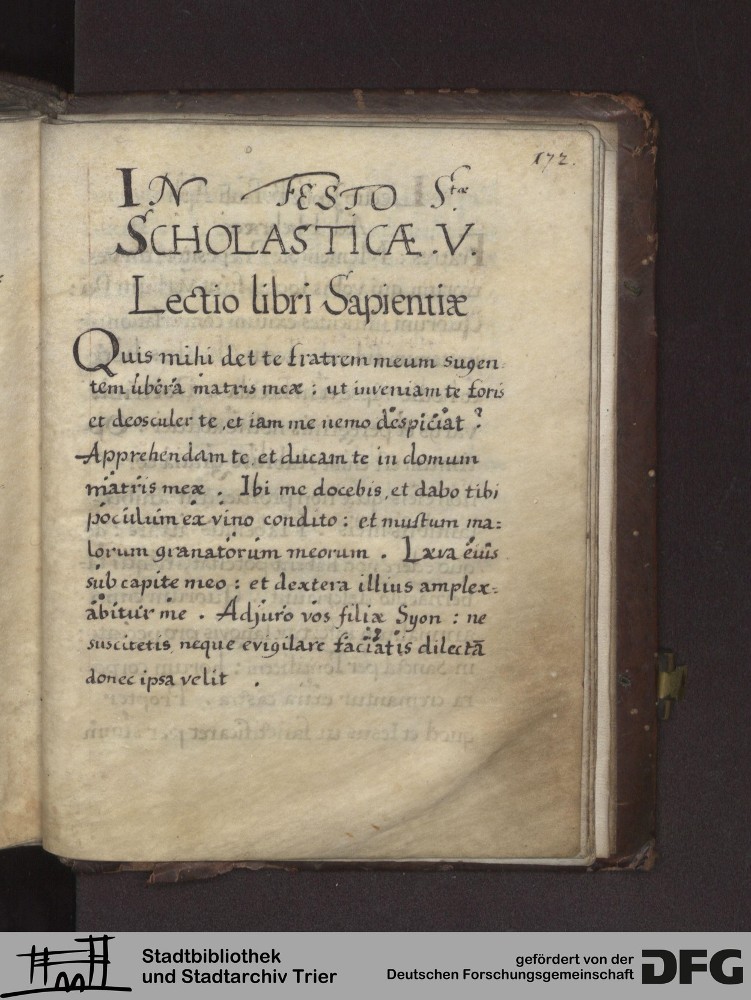 172.
IN FESTO S.tæ
SCHOLASTICÆ .V.
Lectio libri Sapientiæ
Quis mihi det te fratrem meum sugen
tem ubera matris meæ : ut inveniam te foris
et deosculer te, et iam me nemo despiciat ?
Apprehendam te, et ducam te in domum
matris meæ . Ibi me docebis, et dabo tibi
poculum ex vino condito : et mustum ma:
lorum granatorum meorum . Læva eius
sub capite meo : et dextera illius amplex:
abitur me . Adjuro vos filiæ Syon : ne
suscitetis, neque evigilare faciatis dilectā
donec ipsa velit .
Stadtbibliothek
und Stadtarchiv Trier
gefördert von der
Deutschen Forschungsgemeinschaft
DFG